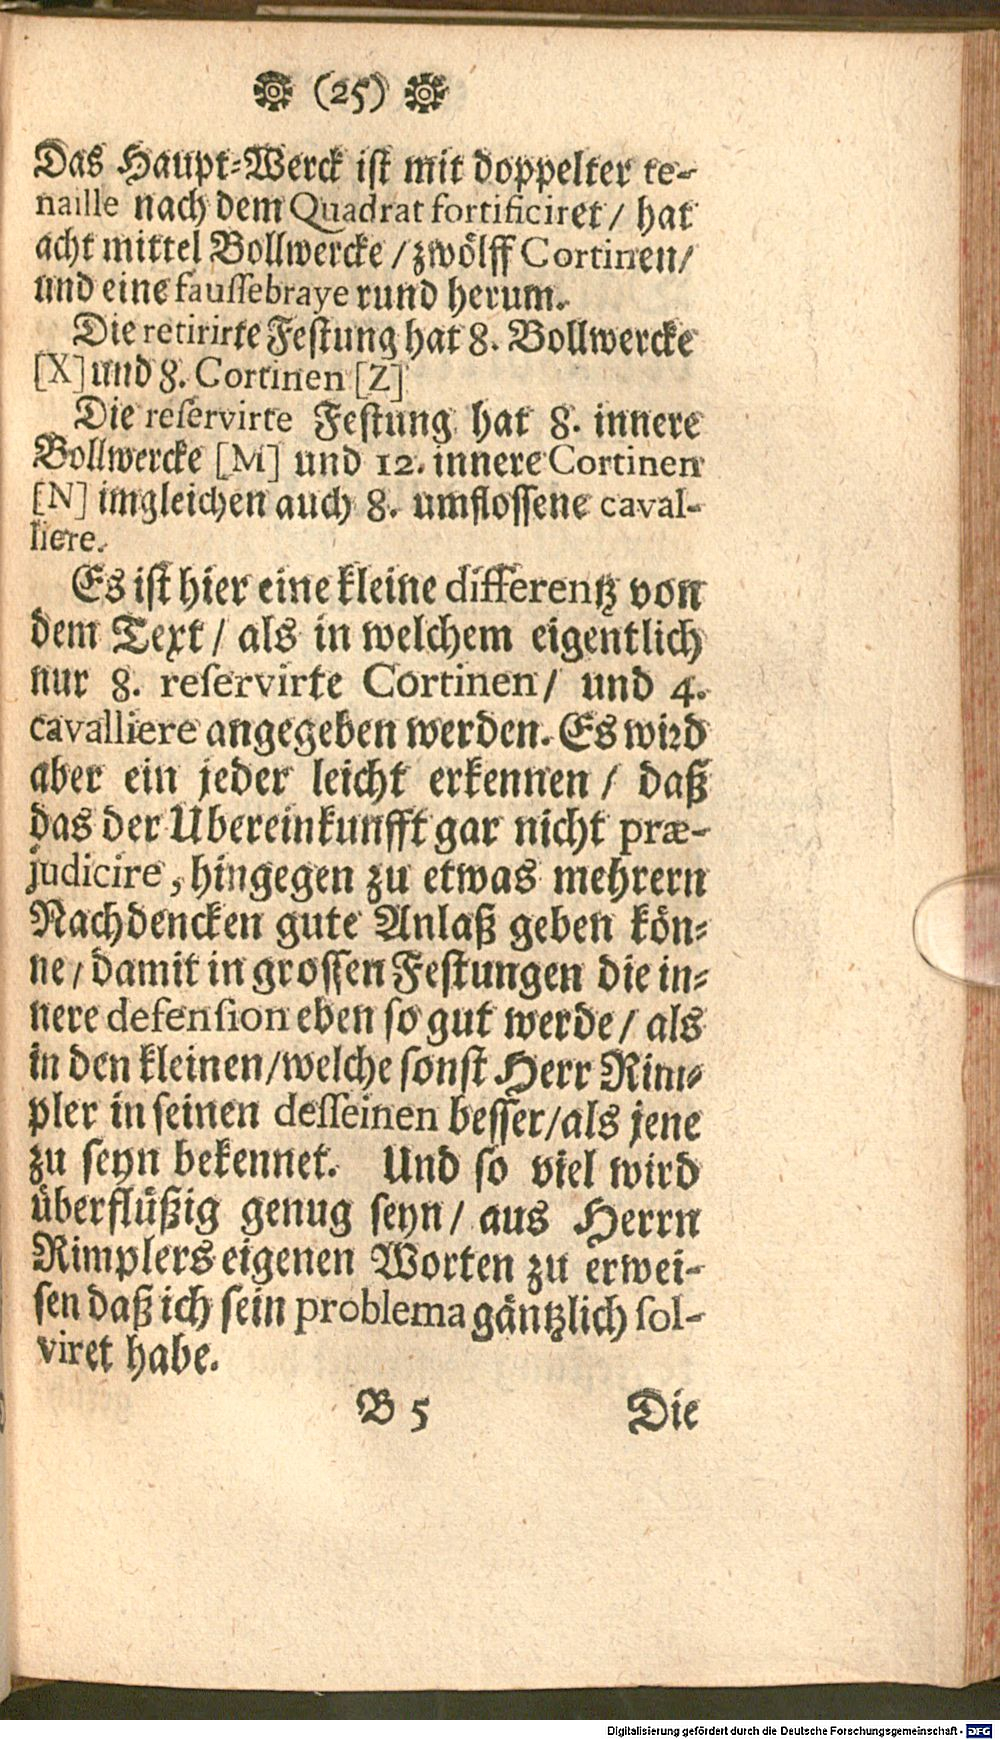 (25)
Das Haupt-Werck ist mit doppelter te-
naille nach dem Quadrat fortificiret / hat
acht mittel Bollwercke / zwölff Cortinen /
und eine faussebraye rund herum.
Die retirirte Festung hat 8. Bollwercke
[X] und 8. Cortinen [Z]
Die reservirte Festung hat 8. innere
Bollwercke [M] und 12. innere Cortinen
[N] imgleichen auch 8. umflossene caval-
liere.
Es ist hier eine kleine differentz von
dem Text / als in welchem eigentlich
nur 8. reservirte Cortinen / und 4.
cavalliere angegeben werden. Es wird
aber ein jeder leicht erkennen / daß
das der Ubereinkunfft gar nicht præ-
judicire, hingegen zu etwas mehrern
Nachdencken gute Anlaß geben kön-
ne / damit in grossen Festungen die in-
nere defension eben so gut werde / als
in den kleinen / welche sonst Herr Rim-
pler in seinen desseinen besser / als jene
zu seyn bekennet. Und so viel wird
überflüßig genug seyn / aus Herrn
Rimplers eigenen Worten zu erwei-
sen daß ich sein problema gäntzlich sol-
viret habe.
B 5 Die
Digitalisierung gefördert durch die Deutsche Forschungsgemeinschaft - DFG